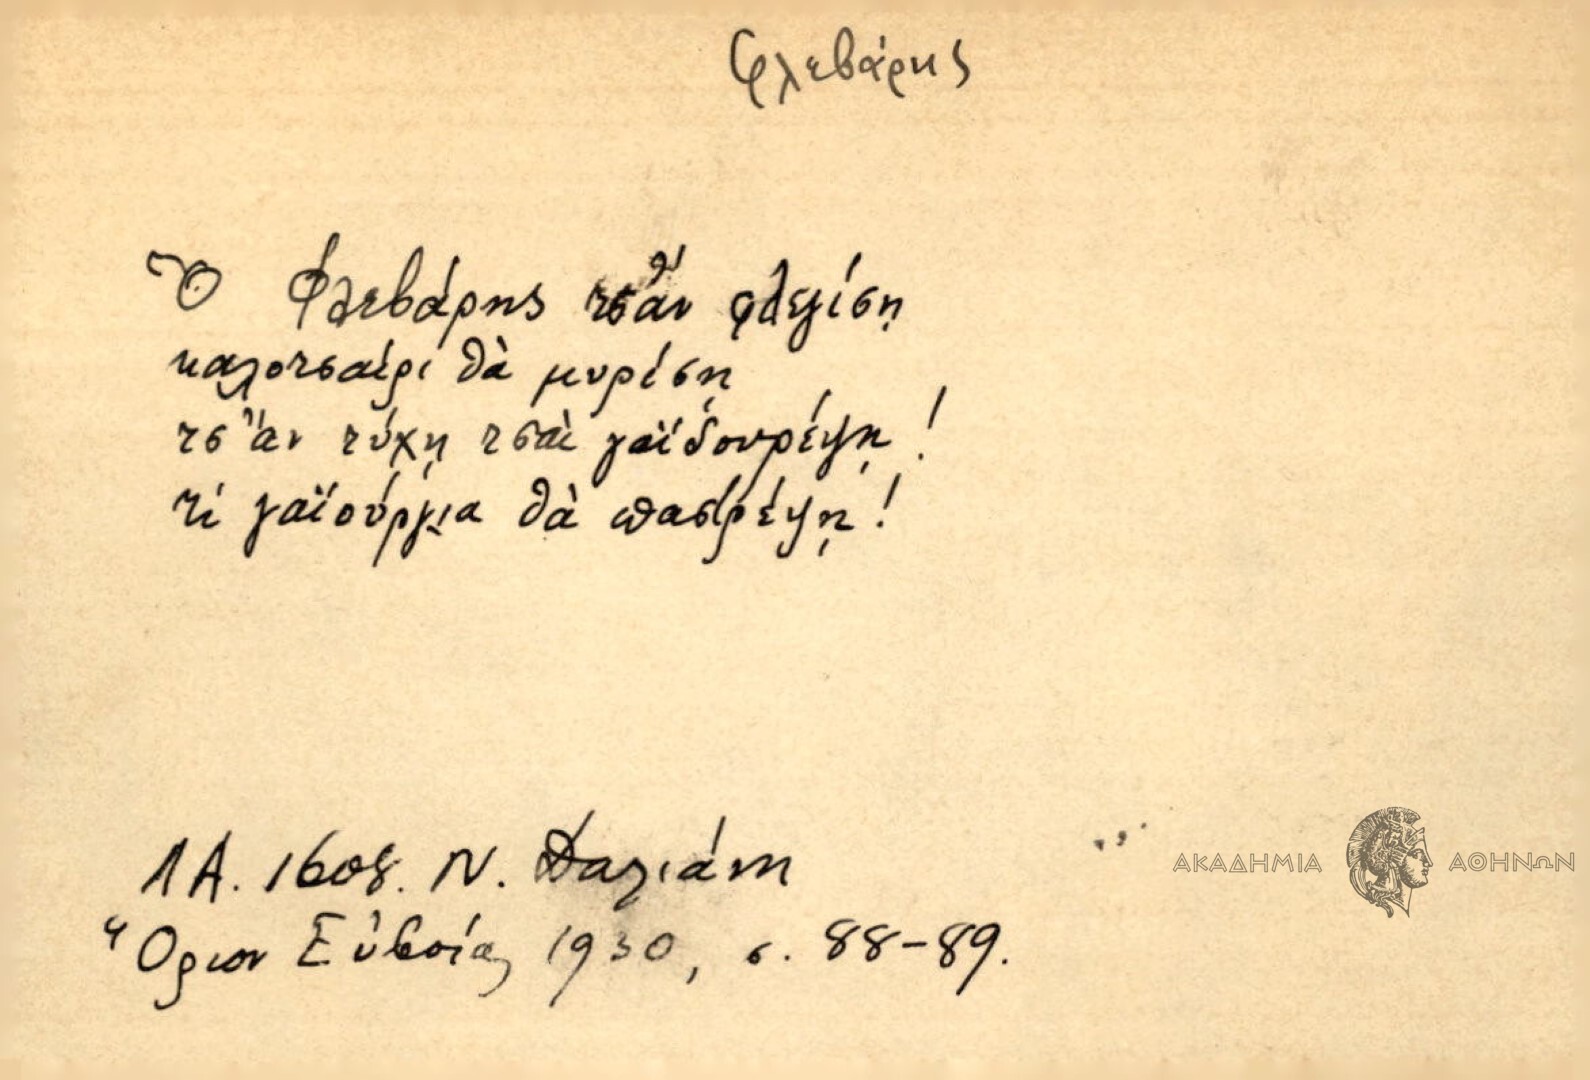 Φλεβάρης
Ὁ Φλεβάρης τσἂν φλεγίσῃ
καλοτσαίρι θὰ μυρίσῃ
τσ' ἂν τύχῃ τσαὶ γαϊδουρέψῃ!
τί γαϊούργια θὰ παστρέψῃ!
ΛΑ. 1608. Ν. Δαλιάνη
Ὅριον Εὐβοίας 1930, σ. 88-89.
ΑΚΑΔΗΜΙΑ ΑΘΗΝΩΝ